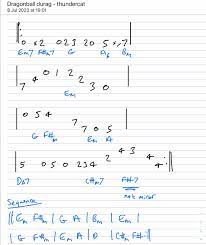 Dragonball durag - thundercat
8 Jul 2023 at 19:01
0 x2 0 2 3 2 0 5 x 7
Em7 F#m7 G A Bm
7 4 0 1 2 2 3 0
Em
0 5 4 7 7 0 5
G F#m Em A
5 0 5 0 2 3 4 2 4 3 4
DΔ7 C#m7 F#7
not minor
Sequence
|| Em F#m | G A | Bm | Em |
| G F#m | Em A | D | C#m F# ||